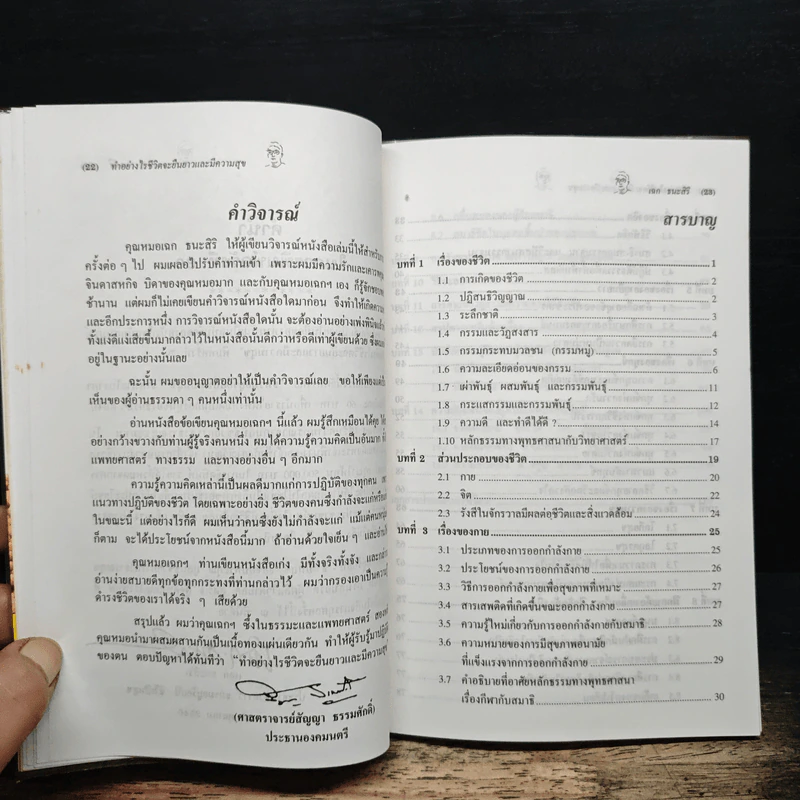 (๒๒) ทำอย่างไรชีวิตจะยืนยาวและมีความสุข
คำวิจารณ์
คุณหมอเฉก ธนะสิริ ให้ผู้เขียนวิจารณ์หนังสือเล่มนี้ให้สำหรับ
ครั้งต่อ ๆ ไป ผมเผลอไปรับคำท่านเข้า เพราะผมมีความรักและเคารพ
จินดาสหกิจ บิดาของคุณหมอมาก และกับคุณหมอเฉกฯ เอง ก็รู้จักชอบพอ
ช้านาน แต่ผมก็ไม่เคยเขียนคำวิจารณ์หนังสือใดมาก่อน จึงทำให้เกิดความ
และอีกประการหนึ่ง การวิจารณ์หนังสือใดนั้น จะต้องอ่านอย่างเพ่งพินิจแล้ว
ทั้งแง่ดีแง่เสียขึ้นมากล่าวไว้ในหนังสือนั้นดีกว่าหรือดีเท่าผู้เขียนด้วย ซึ่งผม
อยู่ในฐานะอย่างนั้นเลย
ฉะนั้น ผมขออนุญาตอย่าให้เป็นคำวิจารณ์เลย ขอให้เพียง
เห็นของผู้อ่านธรรมดา ๆ คนหนึ่งเท่านั้น
อ่านหนังสือข้อเขียนคุณหมอเฉกฯ นี้แล้ว ผมรู้สึกเหมือนได้คุย
อย่างกว้างขวางกับท่านผู้รู้จริงคนหนึ่ง ผมได้ความรู้ความคิดเป็นอันมาก
แพทยศาสตร์ ทางธรรม และทางอย่างอื่น ๆ อีกมาก
ความรู้ความคิดเหล่านี้เป็นผลดีมากแก่การปฏิบัติของทุกคน
แนวทางปฏิบัติของชีวิต โดยเฉพาะอย่างยิ่ง ชีวิตของคนซึ่งกำลังจะแก่หรือ
ในขณะนี้ แต่อย่างไรก็ดี ผมเห็นว่าคนซึ่งยังไม่กำลังจะแก่ แม้แต่คนหนุ่ม
ก็ตาม จะได้ประโยชน์จากหนังสือนี้มาก ถ้าอ่านด้วยใจเย็น ๆ และ
คุณหมอเฉกฯ ท่านเขียนหนังสือเก่ง มีทั้งจริงทั้งจัง และ
อ่านง่ายสบายดีทุกข้อทุกกระทงที่ท่านกล่าวไว้ ผมว่ากรองเอาเป็นความ
ดำรงชีวิตของเราได้จริง ๆ เสียด้วย
สรุปแล้ว ผมว่าคุณเฉกฯ ซึ้งในธรรมะและแพทยศาสตร์ สอง
คุณหมอนำมาผสมผสานกันเป็นเนื้อทองแผ่นเดียวกัน ทำให้ผู้รับรู้มาปฏิบัติ
ของตน ตอบปัญหาได้ทันทีว่า "ทำอย่างไรชีวิตจะยืนยาวและมีความสุข
(ศาสตราจารย์สัญญา ธรรมศักดิ์)
ประธานองคมนตรี
เฉก ธนะสิริ (๒๓)
สารบาญ
บทที่ 1 เรื่องของชีวิต 1
1.1 การเกิดของชีวิต 2
1.2 ปฏิสนธิวิญญาณ 2
1.3 ระลึกชาติ 3
1.4 กรรมและวัฏสงสาร 4
1.5 กรรมกระทบมวลชน (กรรมหมู่) 5
1.6 ความละเอียดอ่อนของกรรม 6
1.7 เผ่าพันธุ์ ผสมพันธุ์ และกรรมพันธุ์ 11
1.8 กระแสกรรมและกรรมพันธุ์ 12
1.9 ความดี และทำดีได้ดี ? 14
1.10 หลักธรรมทางพุทธศาสนากับวิทยาศาสตร์ 17
บทที่ 2 ส่วนประกอบของชีวิต 19
2.1 กาย 20
2.2 จิต 22
2.3 รังสีในจักรวาลมีผลต่อชีวิตและสิ่งแวดล้อม 24
บทที่ 3 เรื่องของกาย 25
3.1 ประเภทของการออกกำลังกาย 25
3.2 ประโยชน์ของการออกกำลังกาย 26
3.3 วิธีการออกกำลังกายเพื่อสุขภาพที่เหมาะ 27
3.4 สารเสพติดที่เกิดขึ้นขณะออกกำลังกาย 27
3.5 ความรู้ใหม่เกี่ยวกับการออกกำลังกายกับสมาธิ 28
3.6 ความหมายของการมีสุขภาพอนามัย
ที่แข็งแรงจากการออกกำลังกาย 29
3.7 คำอธิบายที่อาศัยหลักธรรมทางพุทธศาสนา
เรื่องกีฬากับสมาธิ 30